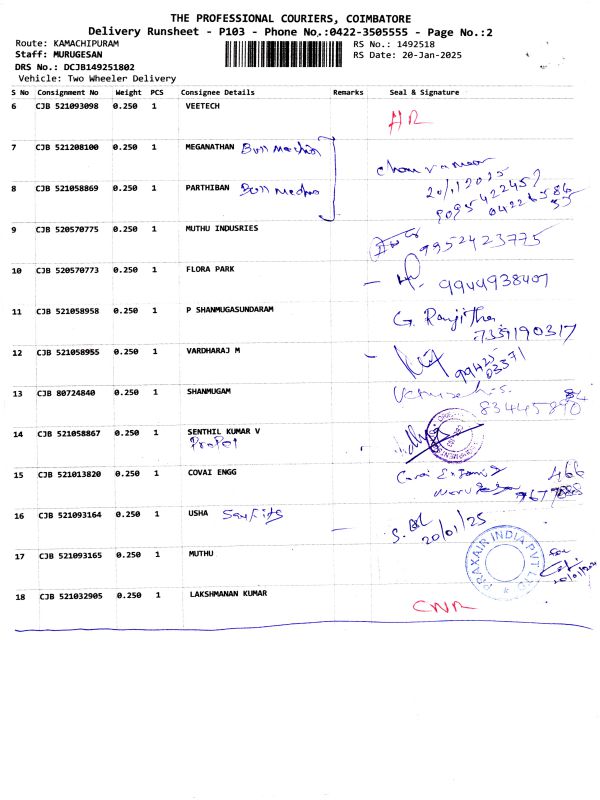 THE PROFESSIONAL COURIERS, COIMBATORE
Delivery Runsheet - P103 - Phone No.:0422-3505555 - Page No.:2
Route: KAMACHIPURAM RS No.: 1492518
Staff: MURUGESAN RS Date: 20-Jan-2025
DRS No.: DCJB149251802
Vehicle: Two Wheeler Delivery
S No Consignment No Weight PCS Consignee Details Remarks Seal & Signature
6 CJB 521093098 0.250 1 VEETECH
7 CJB 521208100 0.250 1 MEGANATHAN
20/1/2025
8 CJB 521058869 0.250 1 PARTHIBAN
9 CJB 520570775 0.250 1 MUTHU INDUSRIES
9952423775
10 CJB 520570773 0.250 1 FLORA PARK
9944938407
11 CJB 521058958 0.250 1 P SHANMUGASUNDARAM G. Ranjitha
7339190317
12 CJB 521058955 0.250 1 VARDHARAJ M
13 CJB 80724840 0.250 1 SHANMUGAM
14 CJB 521058867 0.250 1 SENTHIL KUMAR V
15 CJB 521013820 0.250 1 COVAI ENGG
16 CJB 521093164 0.250 1 USHA
20/01/25
17 CJB 521093165 0.250 1 MUTHU PRAXAIR INDIA PVT LTD
18 CJB 521032905 0.250 1 LAKSHMANAN KUMAR
CNR